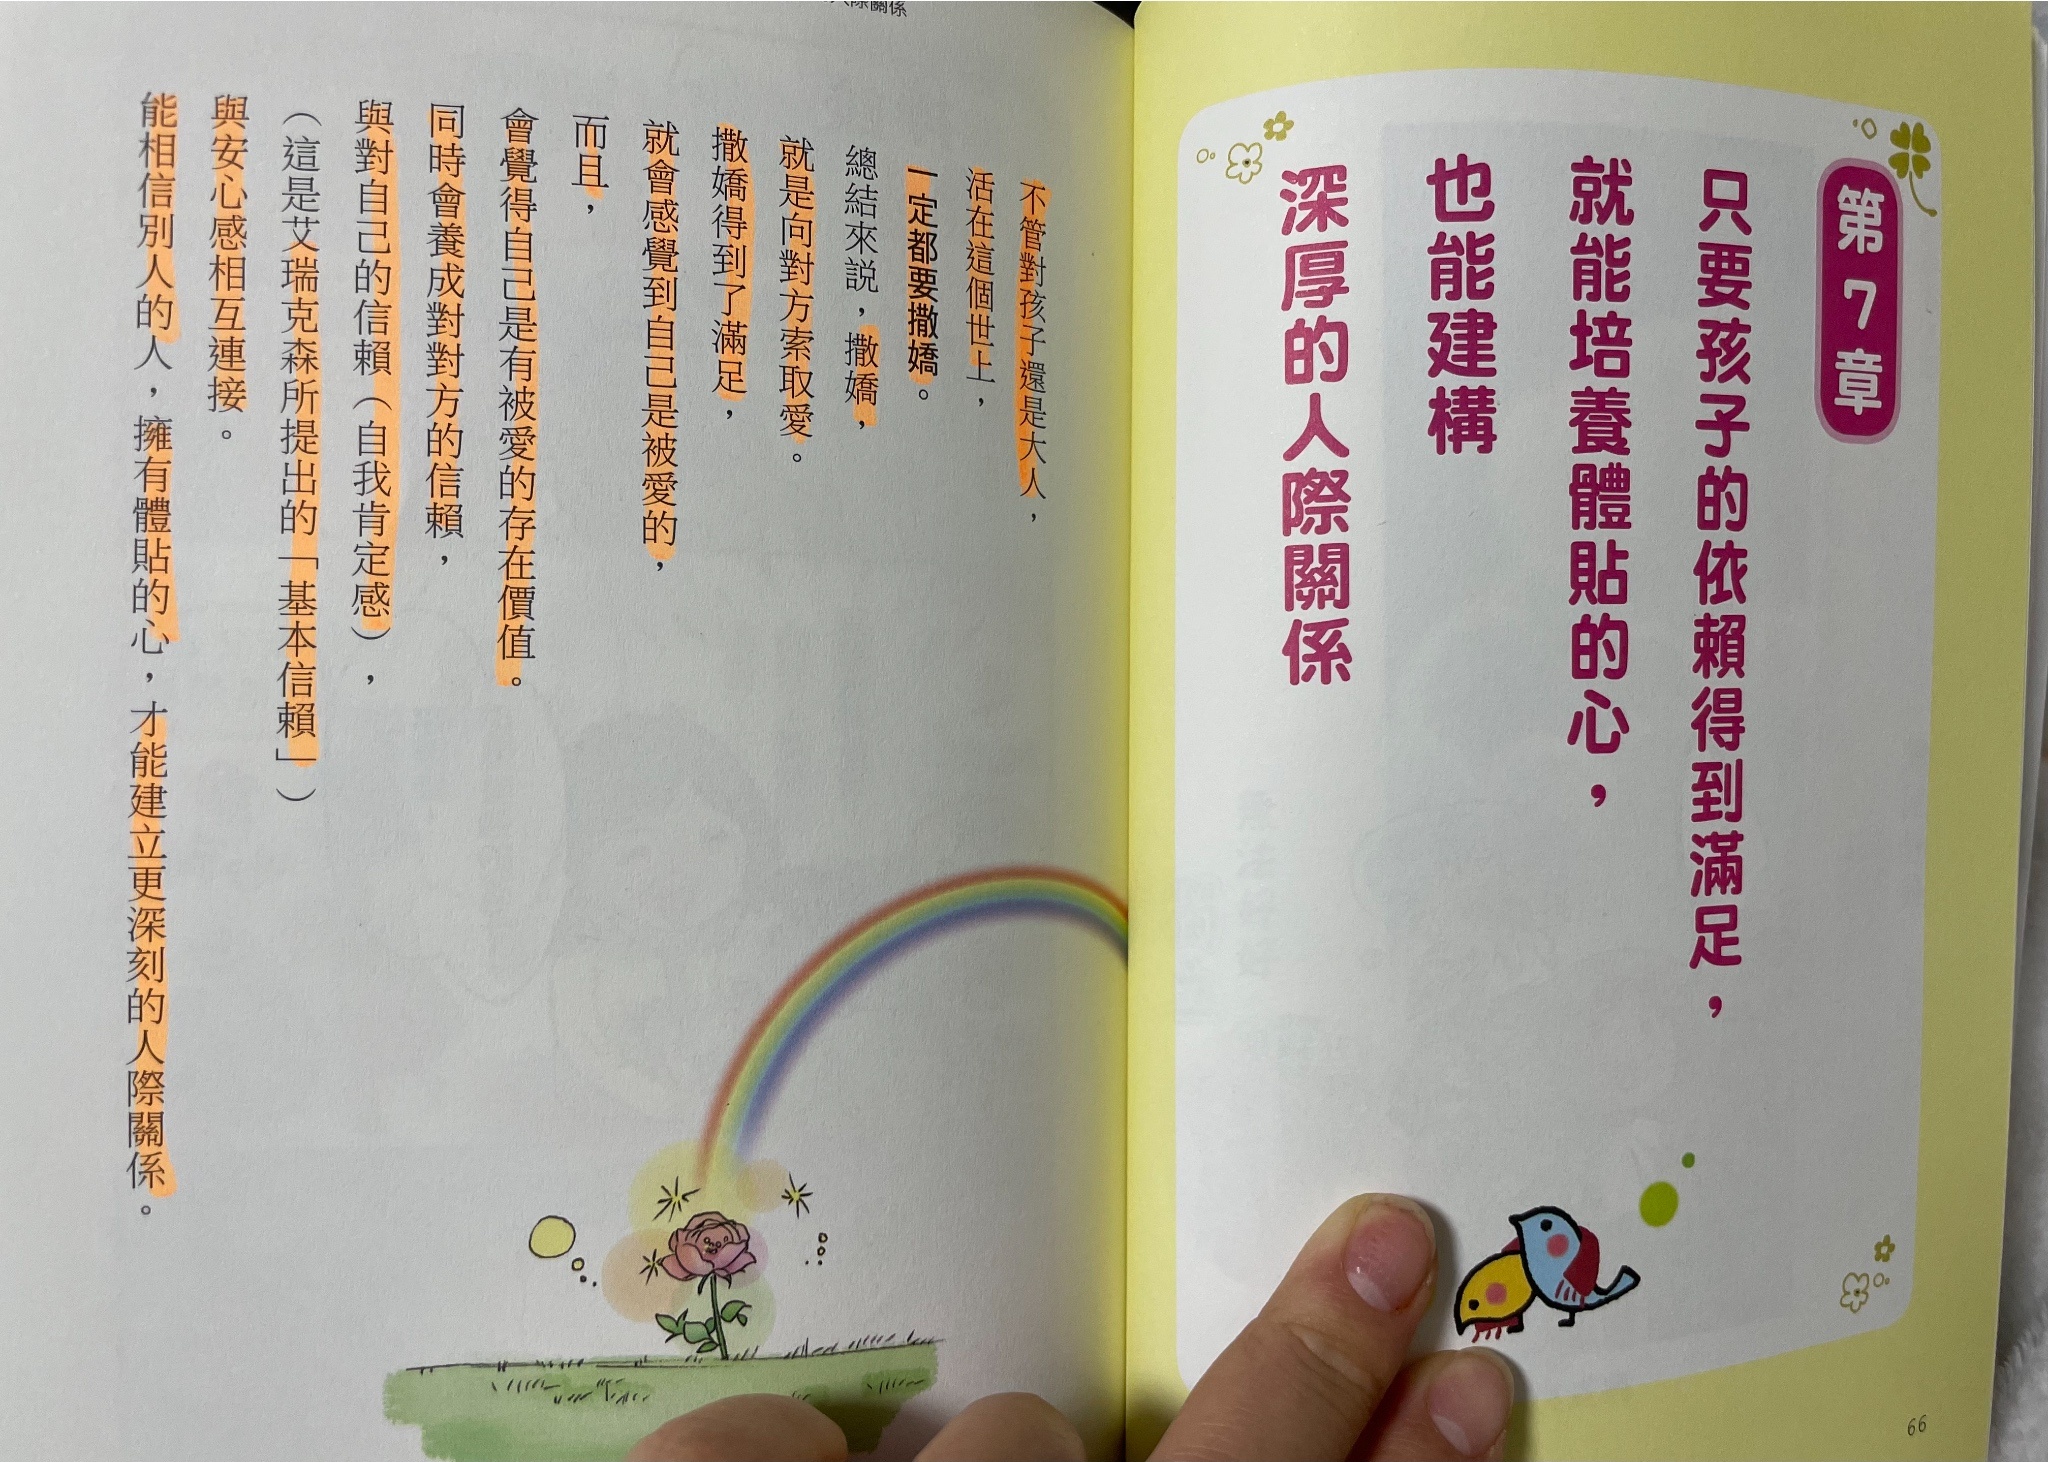 第7章
只要孩子的依賴得到滿足，
就能培養體貼的心，
也能建構
深厚的人際關係
66
人際關係
不管對孩子還是大人，
活在這個世上，
一定都要撒嬌。
總結來説，撒嬌，
就是向對方索取愛。
撒嬌得到了滿足，
就會感覺到自己是被愛的，
而且，
會覺得自己是有被愛的存在價值。
同時會養成對對方的信賴，
與對自己的信賴（自我肯定感），
（這是艾瑞克森所提出的「基本信賴」）
與安心感相互連接。
能相信別人的人，擁有體貼的心，才能建立更深刻的人際關係。